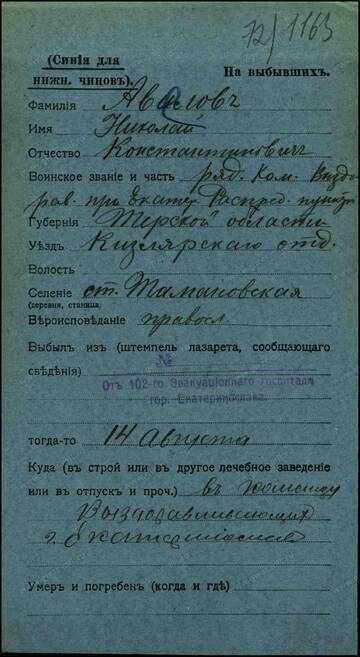 72/1163
(Синія для
нижн. чиновъ).
На выбывшихъ.
Фамилія Аваловъ
Имя Николай
Отчество Константиновичъ
Воинское званіе и часть ряд. Ком. Выздо
рав. при Екатер. Распред. пункт
Губернія Терской области
Уѣздъ Кизлярскаго отд.
Волость
Селеніе ст.
(деревня, станица)
Вѣроисповѣданіе правосл.
Выбылъ изъ (штемпель лазарета, сообщающаго
свѣдѣнія) №
Отъ 102-го Эвакуаціоннаго госпиталя
гор. Екатеринослава.
тогда-то 14 Августа
Куда (въ строй или въ другое лечебное заведеніе
или въ отпускъ и проч.) въ команду
Выздоравливающих
г. Екатеринослав
Умеръ и погребенъ (когда и гдѣ)